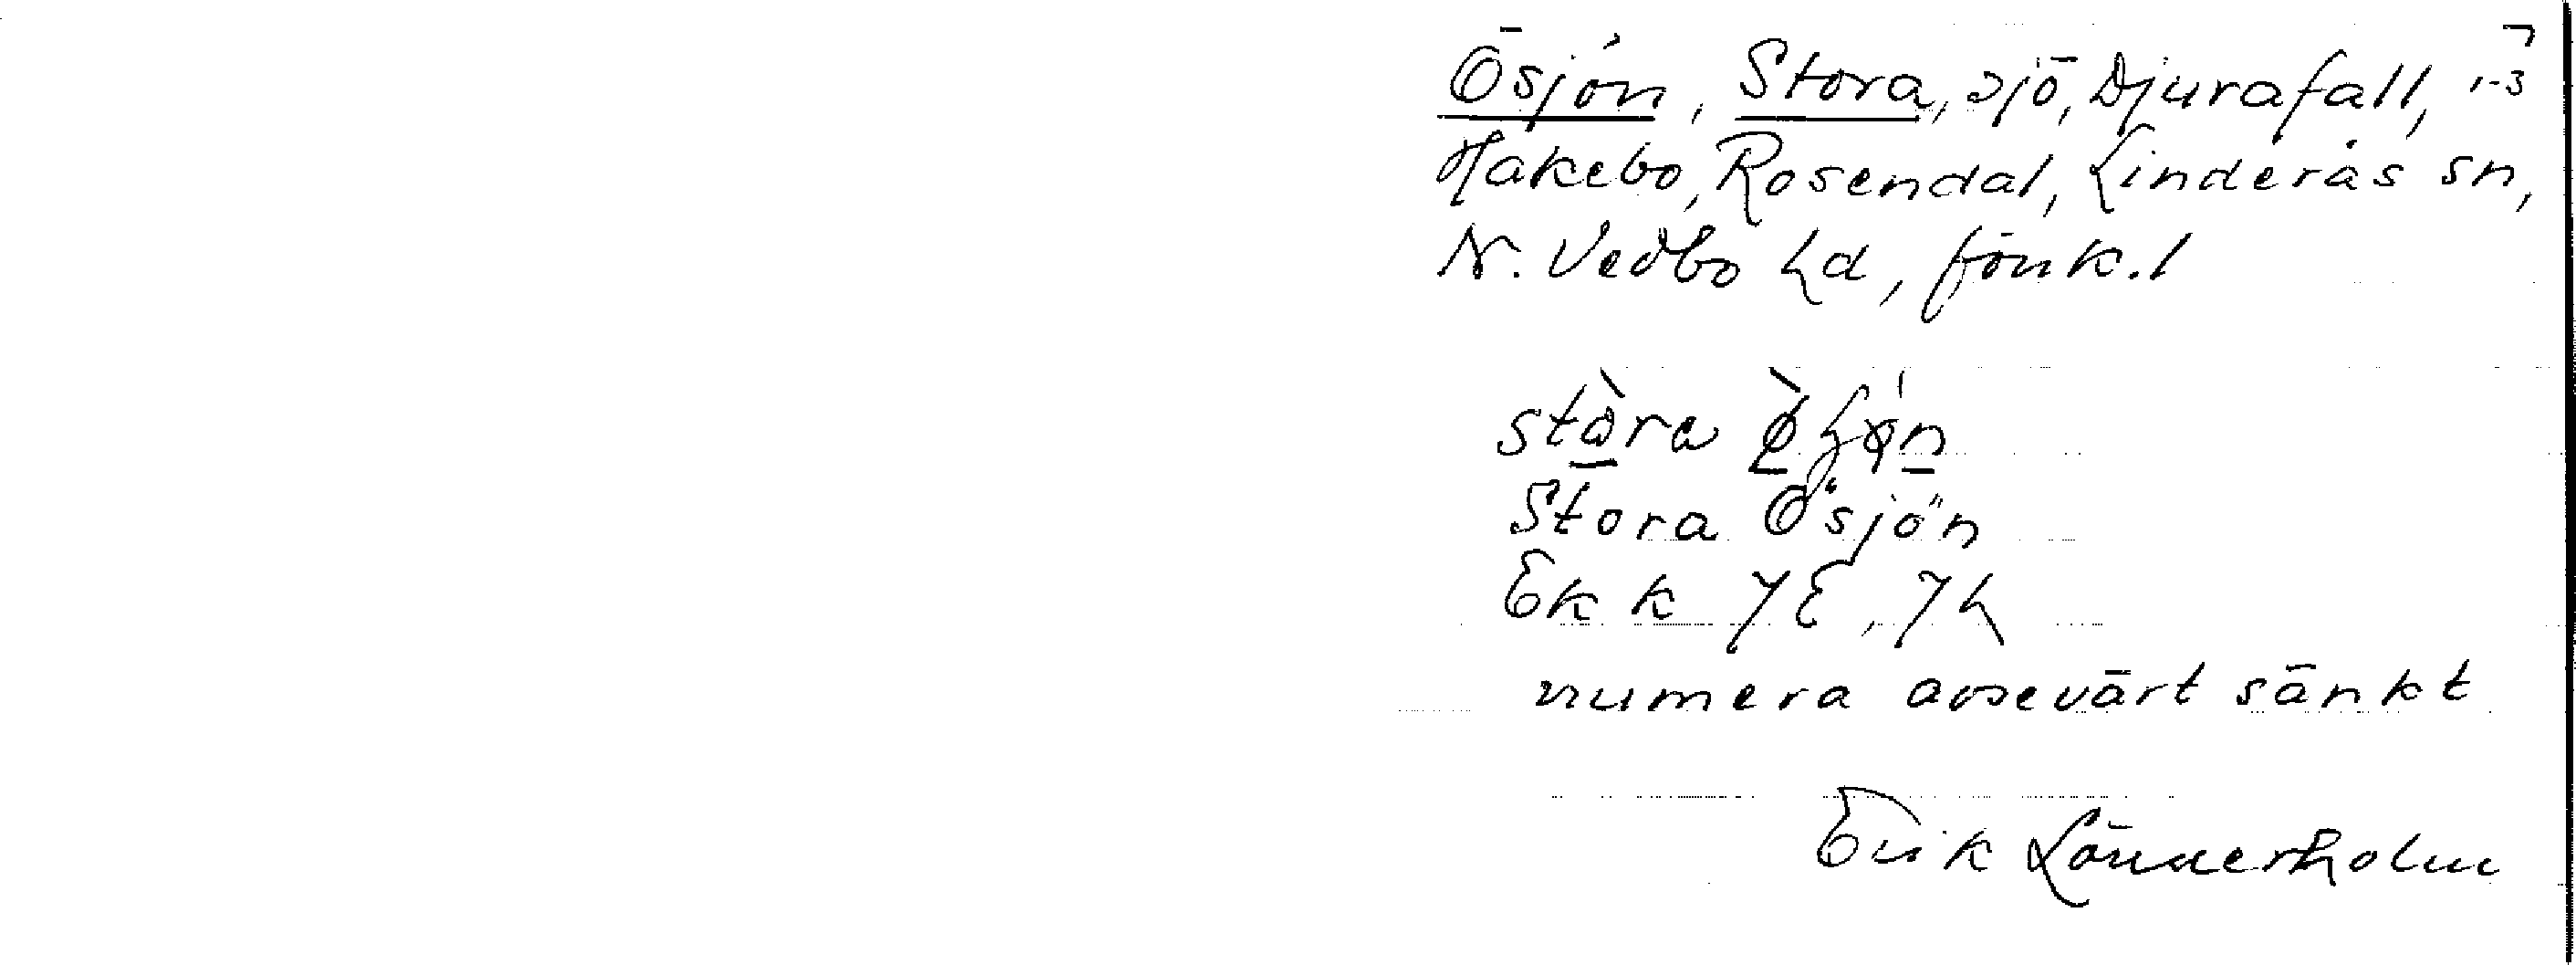 Ösjön, Stora, sjö, Djurafall, 1-3
Hakebo, Rosendal, Linderås sn,
N. Vedbo hd, Jönk. l
Stora Ösjön
Ek k 7E, 7h
numera avsevärt sänkt
Erik Lönnerholm